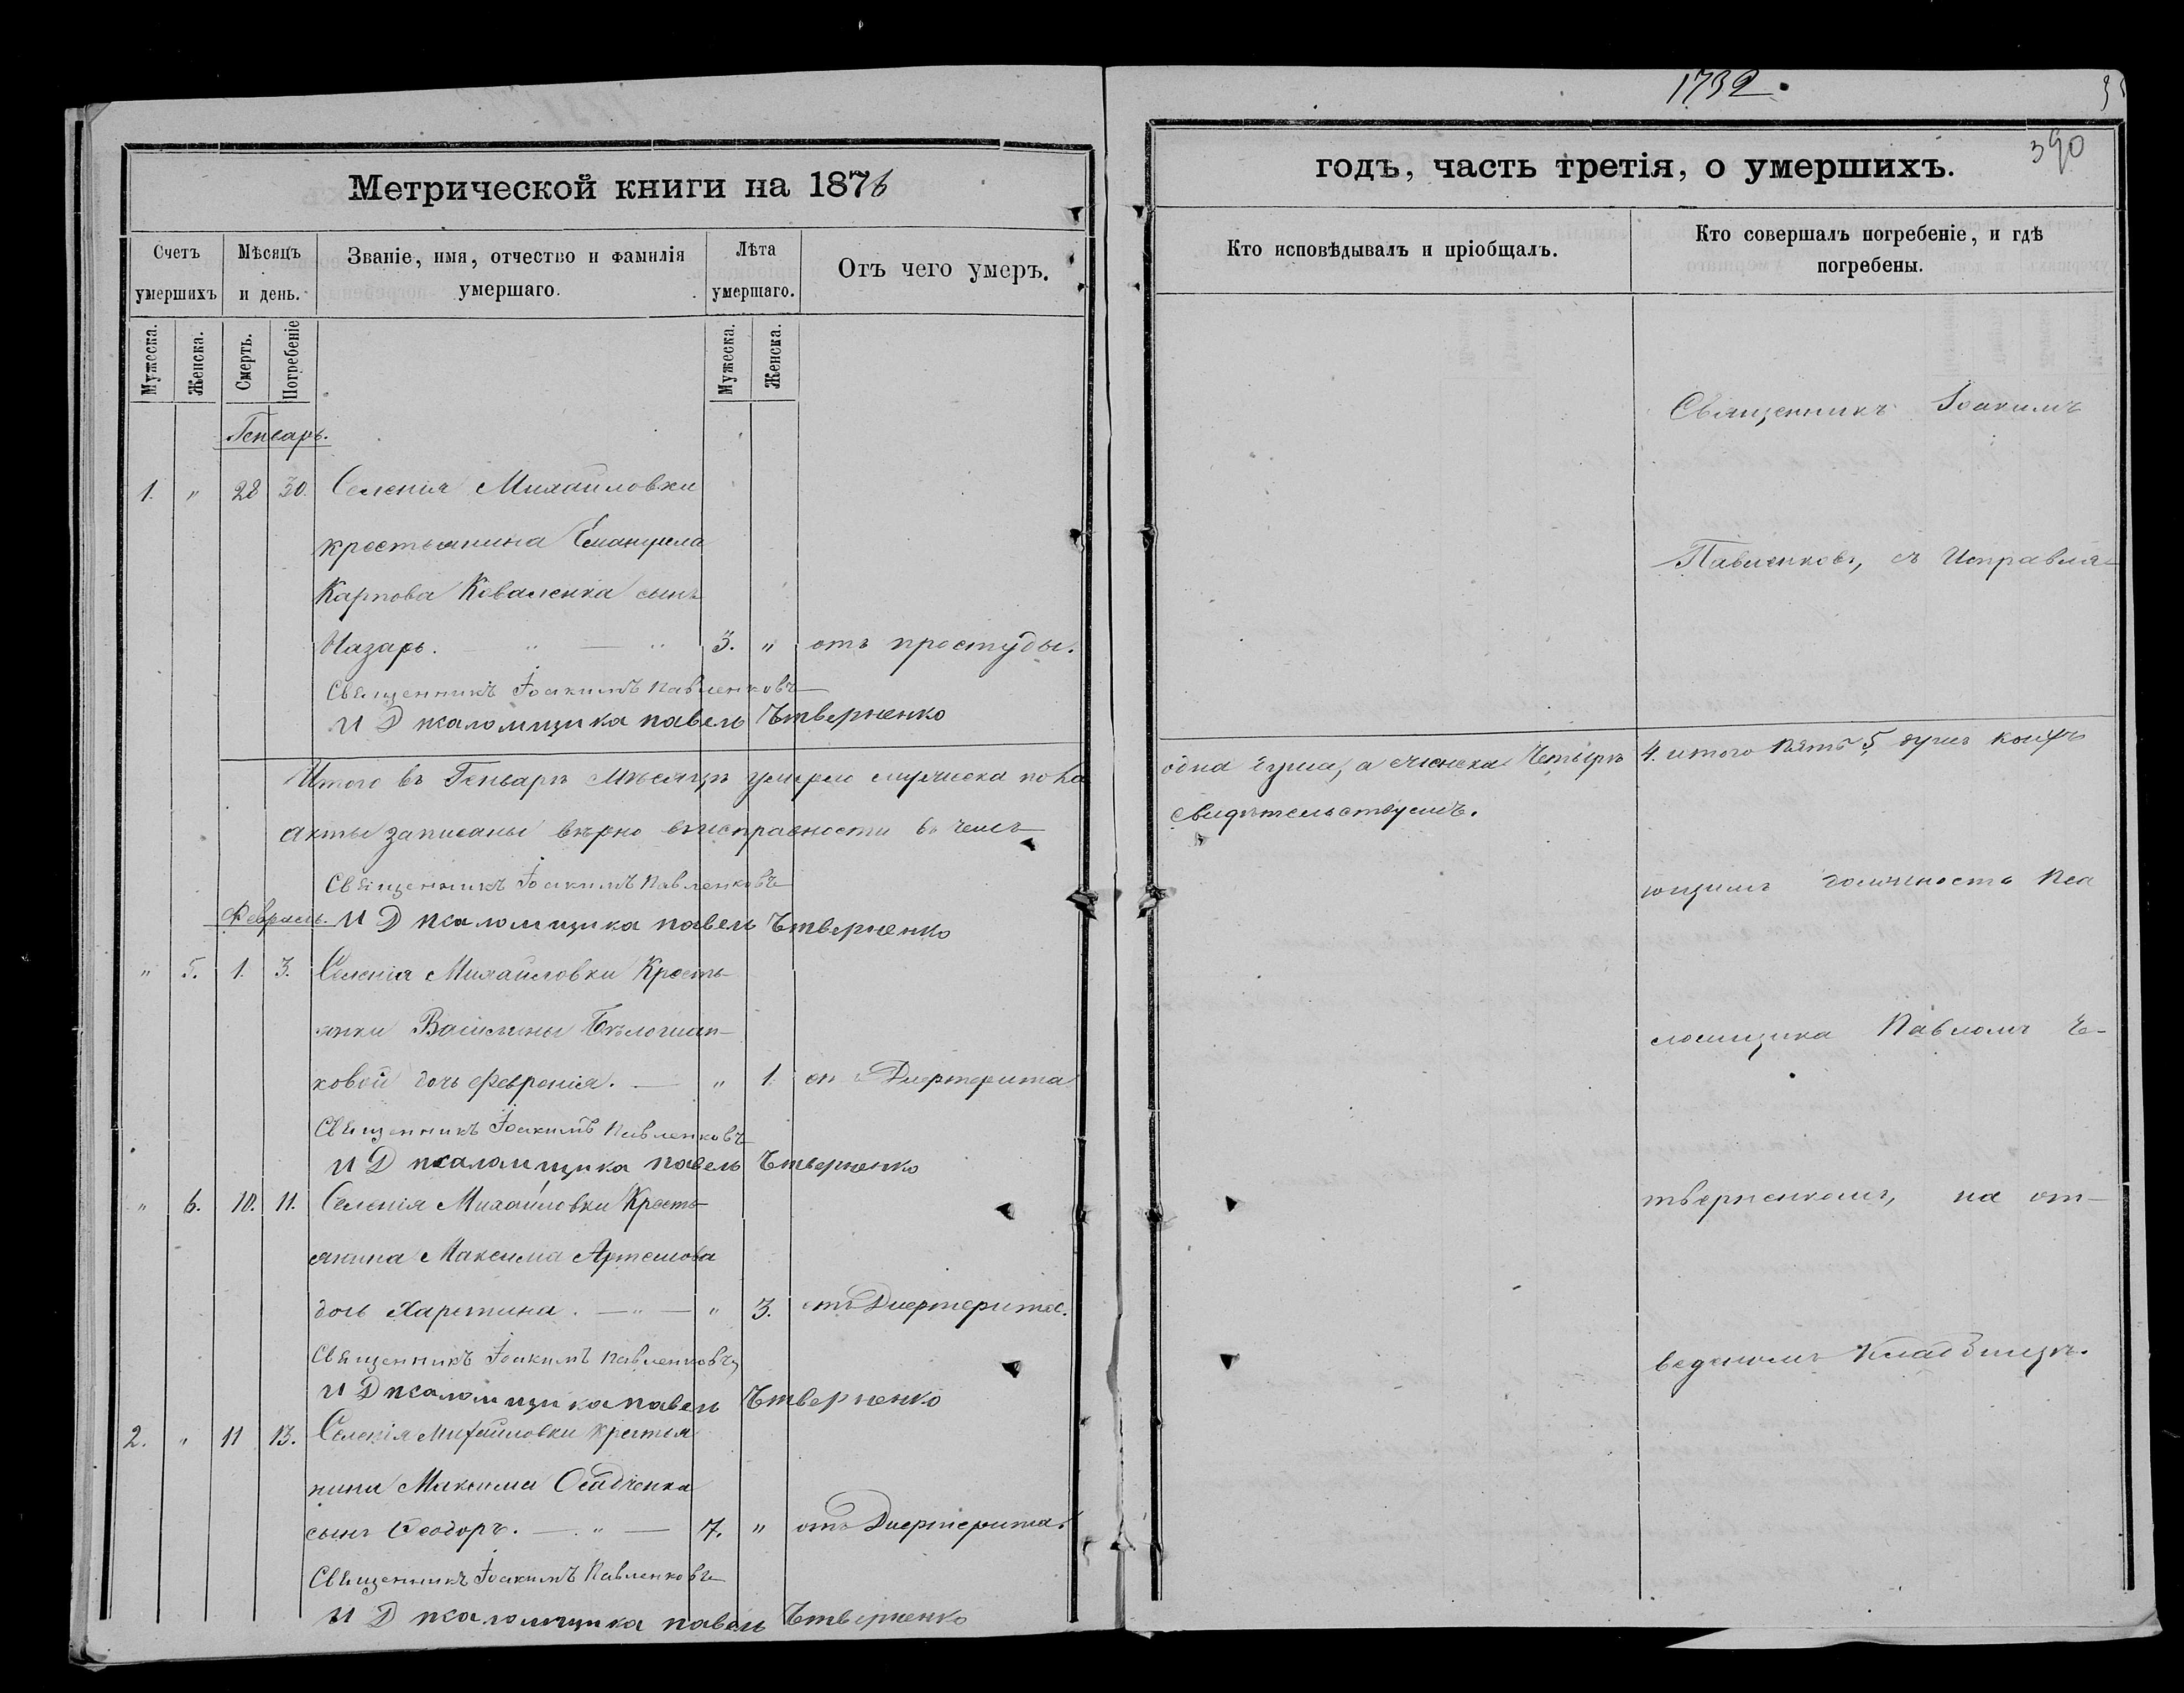 1732.
390
Метрической книги на 1876
годъ, часть третія, о умершихъ.
Счетъ умершихъ
Мѣсяцъ и день.
Званіе, имя, отчество и фамилія умершаго.
Лѣта умершаго.
Отъ чего умеръ.
Кто исповѣдывалъ и пріобщалъ.
Кто совершалъ погребеніе, и гдѣ погребены.
Мужеска.
Женска.
Смерть.
Погребеніе
Мужеска.
Женска.
Генварь.
1. " 28 30. Селенія Михайловки
крестьянина Емануила
Карпова Коваленка сынъ
Назарь. 3. " отъ простуды.
Священникъ Іоакимъ Павленковъ
И Д псаломщика павелъ Чтверненко
Итого въ Генварѣ Мѣсяцѣ умерло мужеска пола одна душа, а женска Четыре 4. итого Пять 5 душъ коихъ
акты записаны вѣрно висправности въ чемъ свидѣтельствуемъ.
Священникъ Іоакимъ Павленковъ
Февраль. И Д псаломщика павелъ Чтверненко
" 5. 1. 3. Селенія Михайловки Кресть
янки Василины Бѣлогиан
ковой дочь Февронія. " 1. от Дифтерита
Священникъ Іоакимъ Павленковъ
И Д псаломщика павелъ Чтверненко
" 6. 10. 11. Селенія Михайловки Кресть
янина Максима Артемова
дочь Харитина. " 3. отъ Дифтерита.
Священникъ Іоакимъ Павленковъ
И Д псаломщика павелъ Чтверненко
2. " 11 13. Селенія Михайловки крестья
нина Максима Осадченка
сынъ Феодоръ. 7. " отъ Дифтерита.
Священникъ Іоакимъ Павленковъ
И Д псаломщика павелъ Чтверненко
Священникъ Іоакимъ
Павленковъ, съ Исправля-
ющимъ должность Пса
ломщика Павломъ Че-
тверненкомъ, на от-
веденомъ Кладбищѣ.